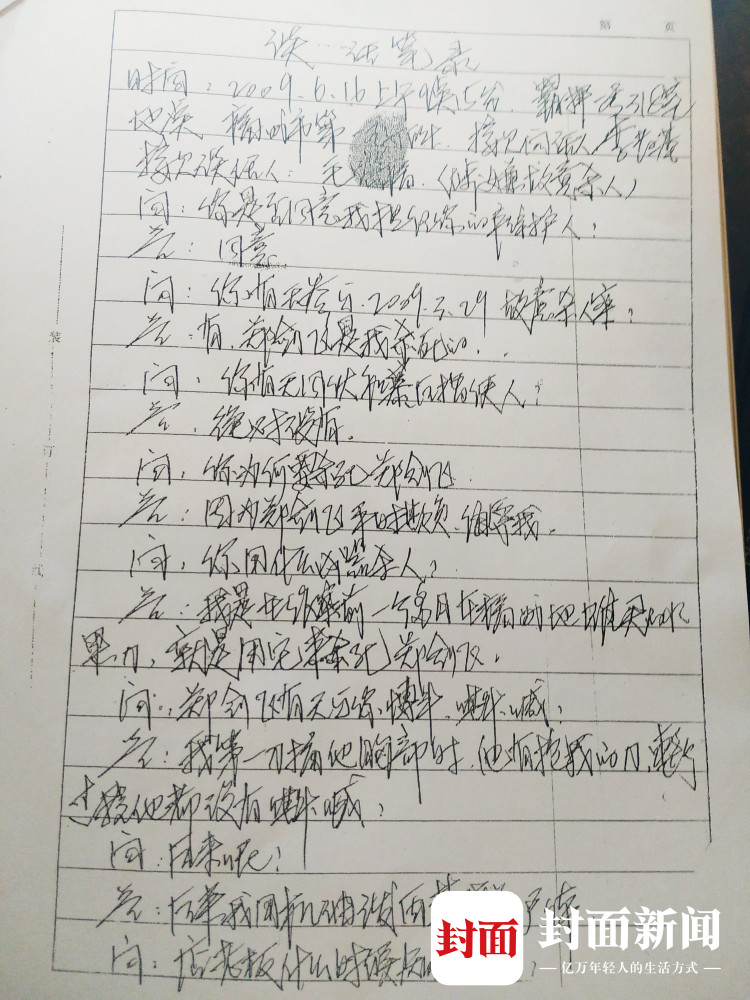 第 页
谈话笔录
时间:2009.6.16上午9点15分.
地点 福州市第 接次问话人 李
接次谈话人:毛 (涉嫌故意杀人)
问:你是否同意我担任你的辩护人?
答:同意
问:你有无参与.2009.3.29 故意杀人案?
答:有,郑剑飞是我杀死的.
问:你有无同伙和幕后指使人?
答:绝对没有.
问,你为何要杀死郑剑飞
答:因为郑剑飞平时欺负.侮辱我.
问,你用什么凶器杀人?
答:我是在作案前一个多月在福州地摊买的水
果刀,就是用它来杀死郑剑飞.
问:郑剑飞有无与你搏斗.叫喊?
答:我第一刀捅他胸部时.他有抢我的刀,整个
过程他都没有叫喊?
问:后来呢?
答:后来我用手机
问:店老板什么时候
装
订
封面
封面新闻
亿万年轻人的生活方式